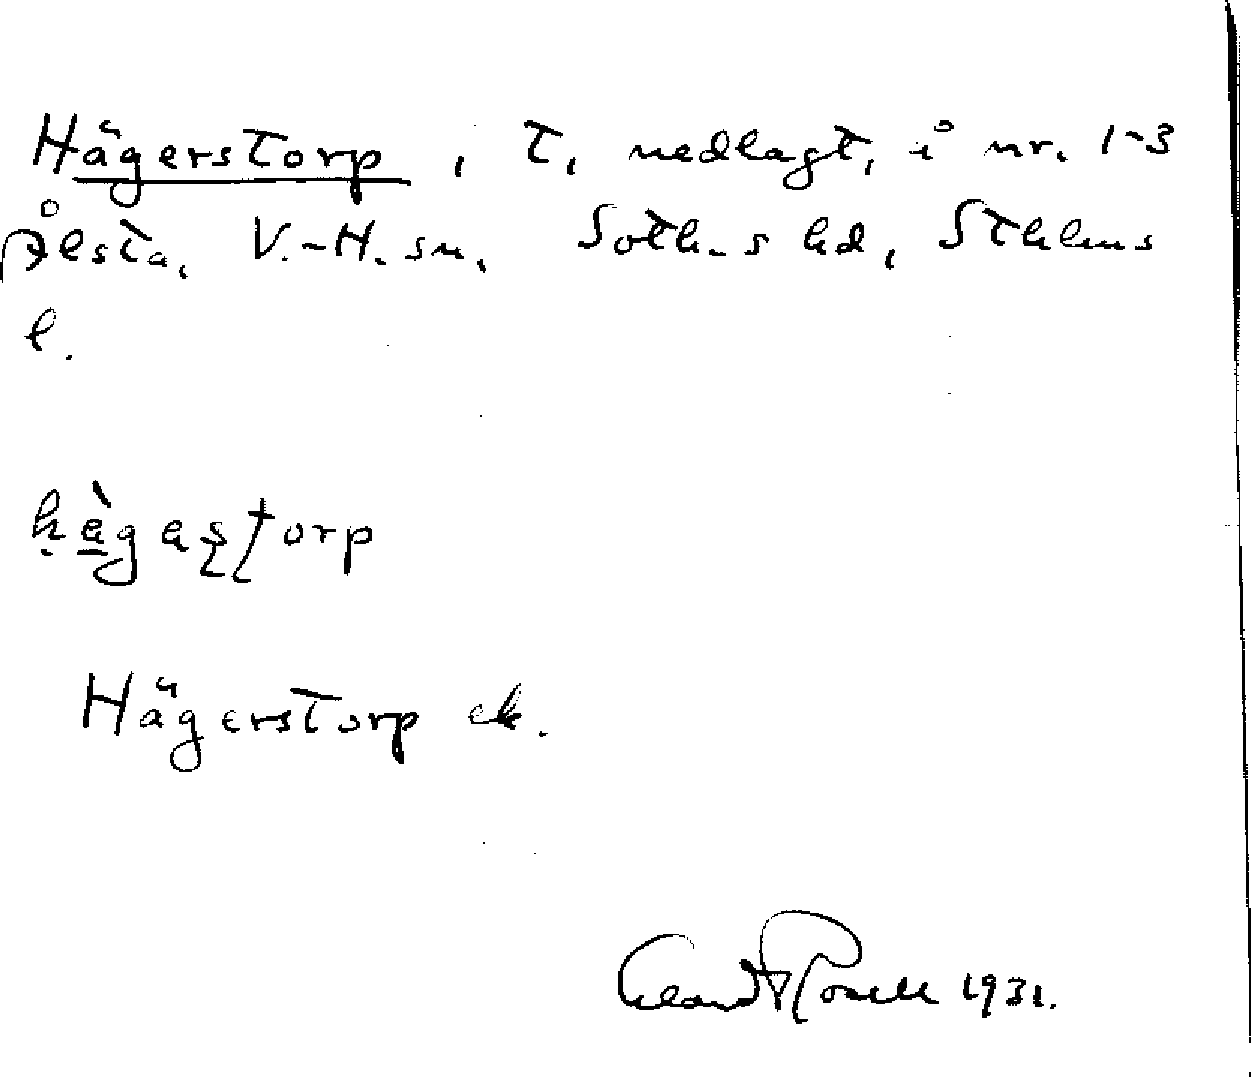 Hägerstorp, t, nedlagt, å nr. 1-3
Ålsta, V.-H. sn, Soth.s hd, Sthlms
l.
Hägerstorp ek.
1931.